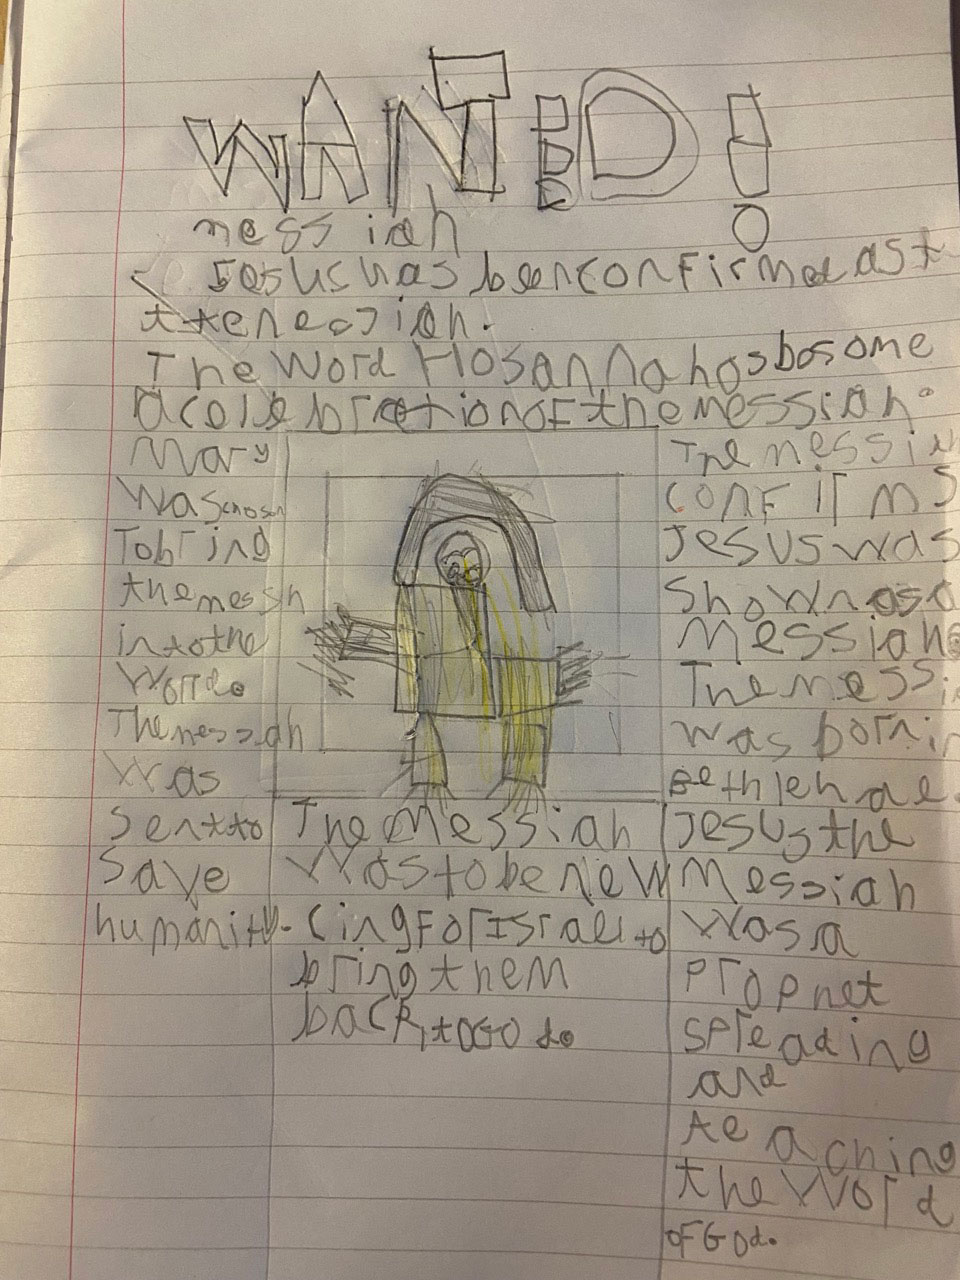 WANTED!
messiah
Jesus has been confirmed as t
the messiah.
The Word Hosanna has bosome
a colebration of the messiah.
Mary
Was chosn
To bring
the messih
into the
World.
The messiah
Was
Sent to
Save
humanity.
The Messiah
Was to be New
Cing For Israel to
bring them
back to God.
The messi
CONFIrMS
Jesus was
Shown as a
Messiah
The messi
was born in
Bethlehae.
Jesus the
Messiah
Was a
Prophet
SPreading
and
teaching
the World
of God.